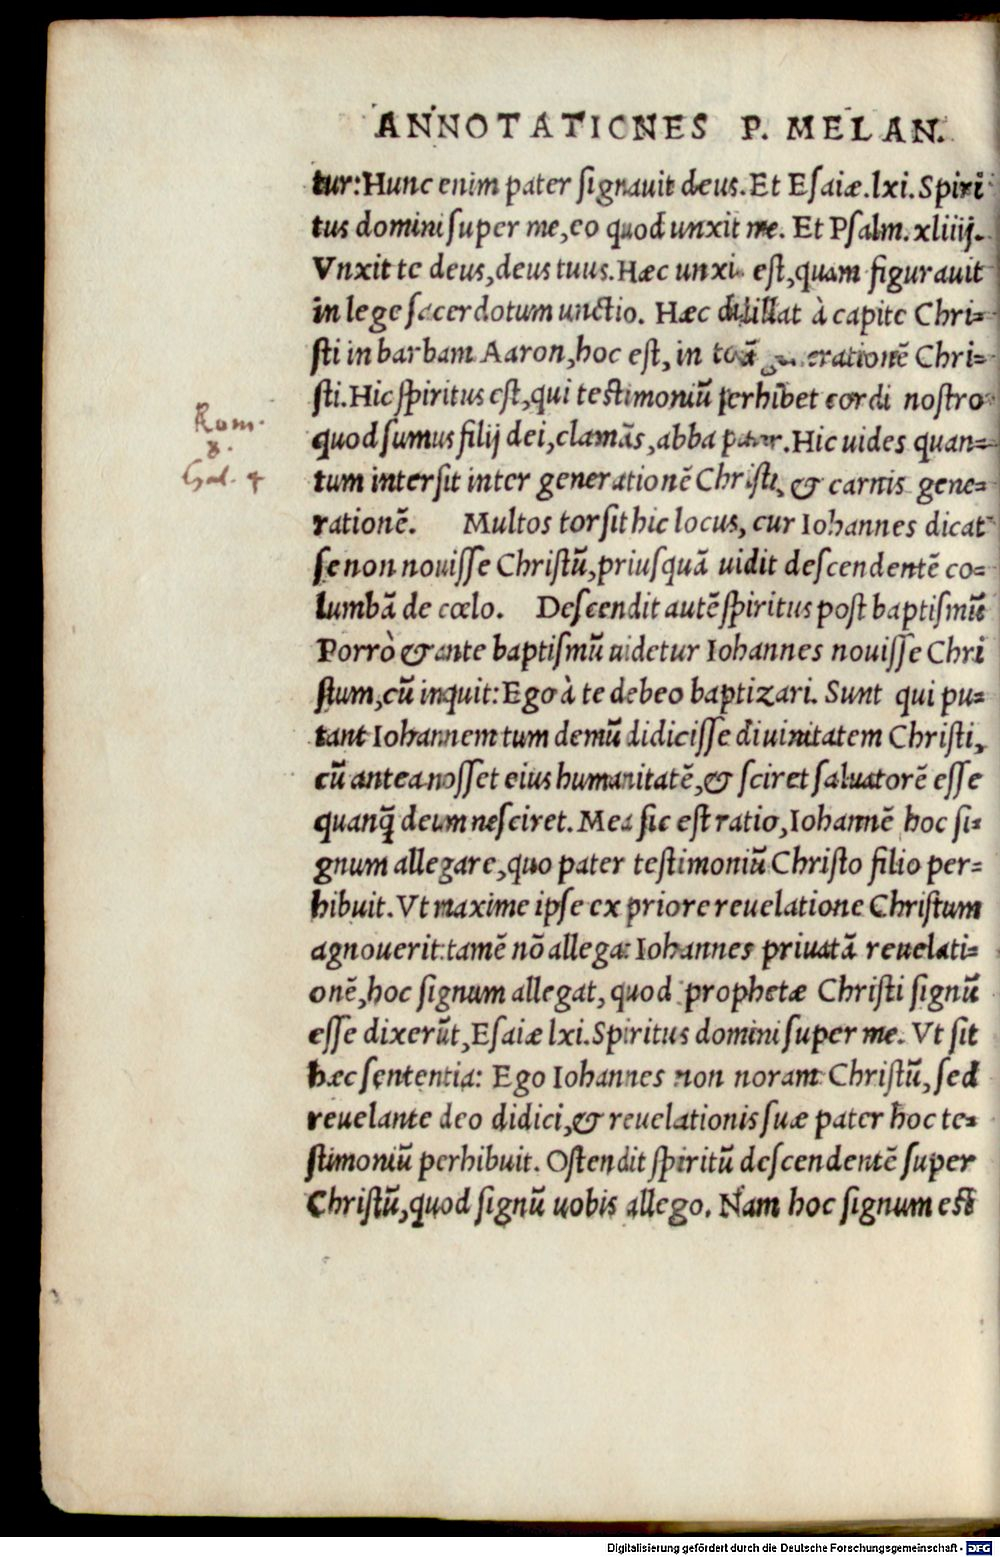 ANNOTATIONES P. MELAN.
tur: Hunc enim pater signauit deus. Et Esaiæ. lxi. Spiri
tus domini super me, eo quod unxit me. Et Psalm. xliiij.
Vnxit te deus, deus tuus. Hæc unxi est, quam figurauit
in lege sacerdotum unctio. Hæc distillat à capite Chri=
sti in barbam Aaron, hoc est, in totā generationē Chri=
sti. Hic spiritus est, qui testimoniū perhibet cordi nostro
quod sumus filij dei, clamās, abba pater. Hic uides quan=
tum intersit inter generationē Christi, & carnis gene=
rationē. Multos torsit hic locus, cur Iohannes dicat
se non nouisse Christū, priusquā uidit descendentē co=
lumbā de cœlo. Descendit autē spiritus post baptismū
Porrò & ante baptismū uidetur Iohannes nouisse Chri
stum, cū inquit: Ego à te debeo baptizari. Sunt qui pu=
tant Iohannem tum demū didicisse diuinitatem Christi,
cū antea nosset eius humanitatē, & sciret saluatorē esse
quanq̄ deum nesciret. Mea sic est ratio, Iohannē hoc si=
gnum allegare, quo pater testimoniū Christo filio per=
hibuit. Vt maxime ipse ex priore reuelatione Christum
agnouerit: tamē nō allegat Iohannes priuatā reuelati=
onē, hoc signum allegat, quod prophetæ Christi signū
esse dixerūt, Esaiæ lxi. Spiritus domini super me. Vt sit
hæc sententia: Ego Iohannes non noram Christū, sed
reuelante deo didici, & reuelationis suæ pater hoc te=
stimoniū perhibuit. Ostendit spiritū descendentē super
Christū, quod signū uobis allego. Nam hoc signum est
Rom.
8.
Gal. 4
Digitalisierung gefördert durch die Deutsche Forschungsgemeinschaft - DFG